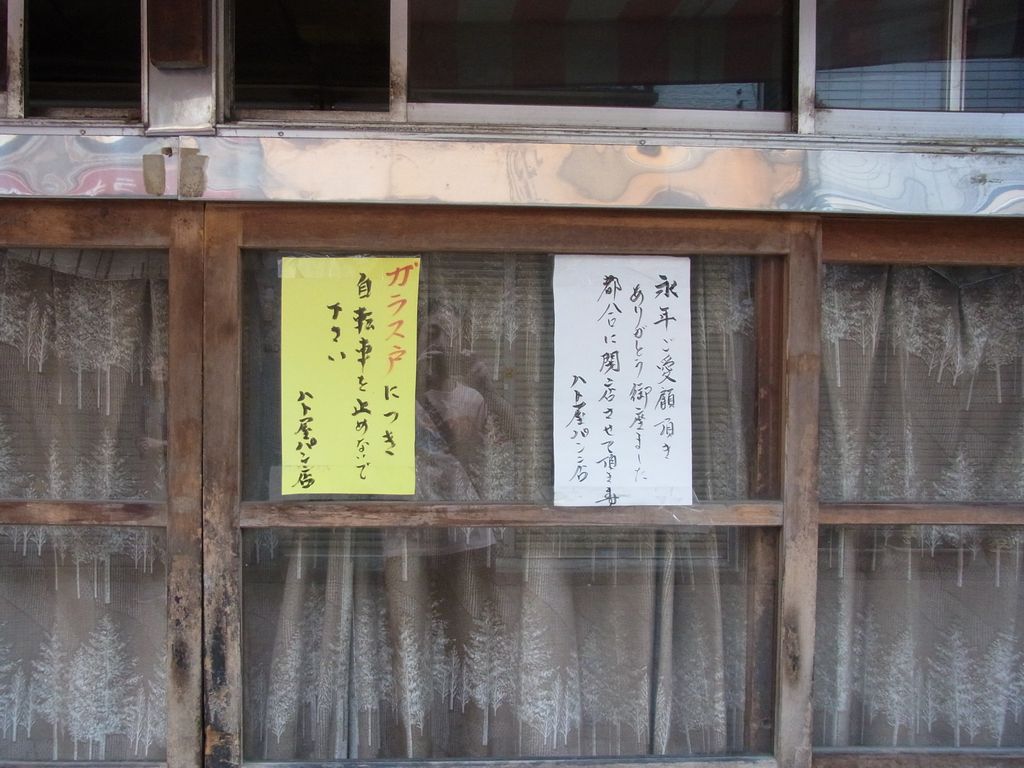 永年ご愛顧頂き
ありがとう御座ました
都合に閉店させて頂き
ハト屋パン店
ガラス戸につき
自転車を止めないで
下さい
ハト屋パン店